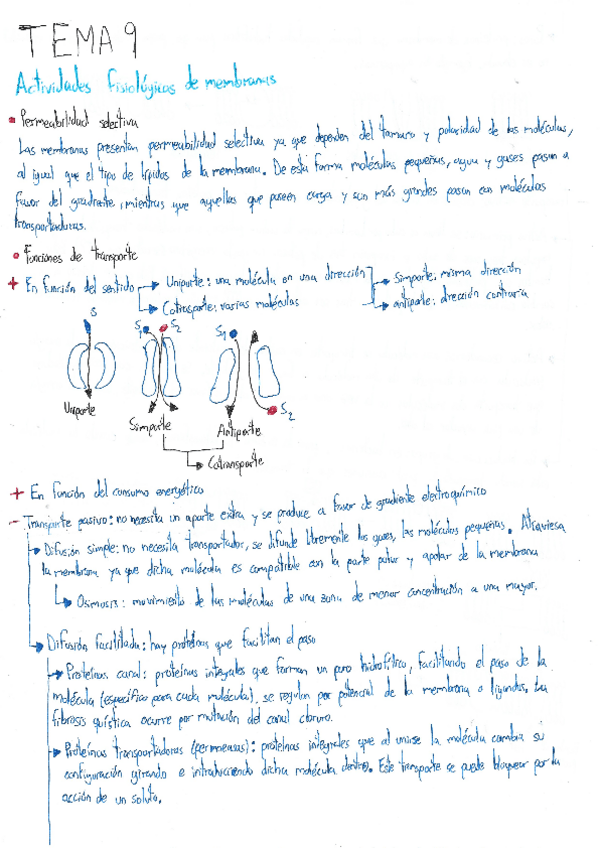 TEMA 9
Actividades fisiológicas de membranas
Permeabilidad selectiva
Las membranas presentan permeabilidad selectiva ya que dependen del tamaño y polaridad de las moléculas,
al igual que el tipo de lípidos de la membrana. De esta forma moléculas pequeñas, agua y gases pasan a
favor del gradiente, mientras que aquellas que poseen carga y son más grandes pasan con moléculas
transportadoras.
Funciones de transporte
+ En función del sentido → Uniporte: una molécula en una dirección → Simporte: misma dirección
→ Cotrasporte: varias moléculas → antiporte: dirección contraria
S S1 S2 S1
Uniporte Simporte Antiporte S2
→ Cotransporte
+ En función del consumo energético
- Transporte pasivo: no necesita un aporte extra y se produce a favor de gradiente electroquímico
→ Difusión simple: no necesita transportador, se difunde libremente los gases, las moléculas pequeñas. Atraviesa
la membrana ya que dicha molécula es compatible con la parte polar y apolar de la membrana
→ Osmosis: movimiento de las moléculas de una zona de menor concentración a una mayor.
→ Difusión facilitada: hay proteínas que facilitan el paso
→ Proteínas canal: proteínas integrales que forman un poro hidrofílico, facilitando el paso de la
molécula (específico para cada molécula), se regulan por potencial de la membrana o ligandos, la
fibrosis quística ocurre por mutación del canal cloruro.
→ Proteínas transportadoras (permeasas): proteínas integrales que al unirse la molécula cambia su
configuración girando e introduciendo dicha molécula dentro. Este transporte se puede bloquear por la
acción de un soluto.